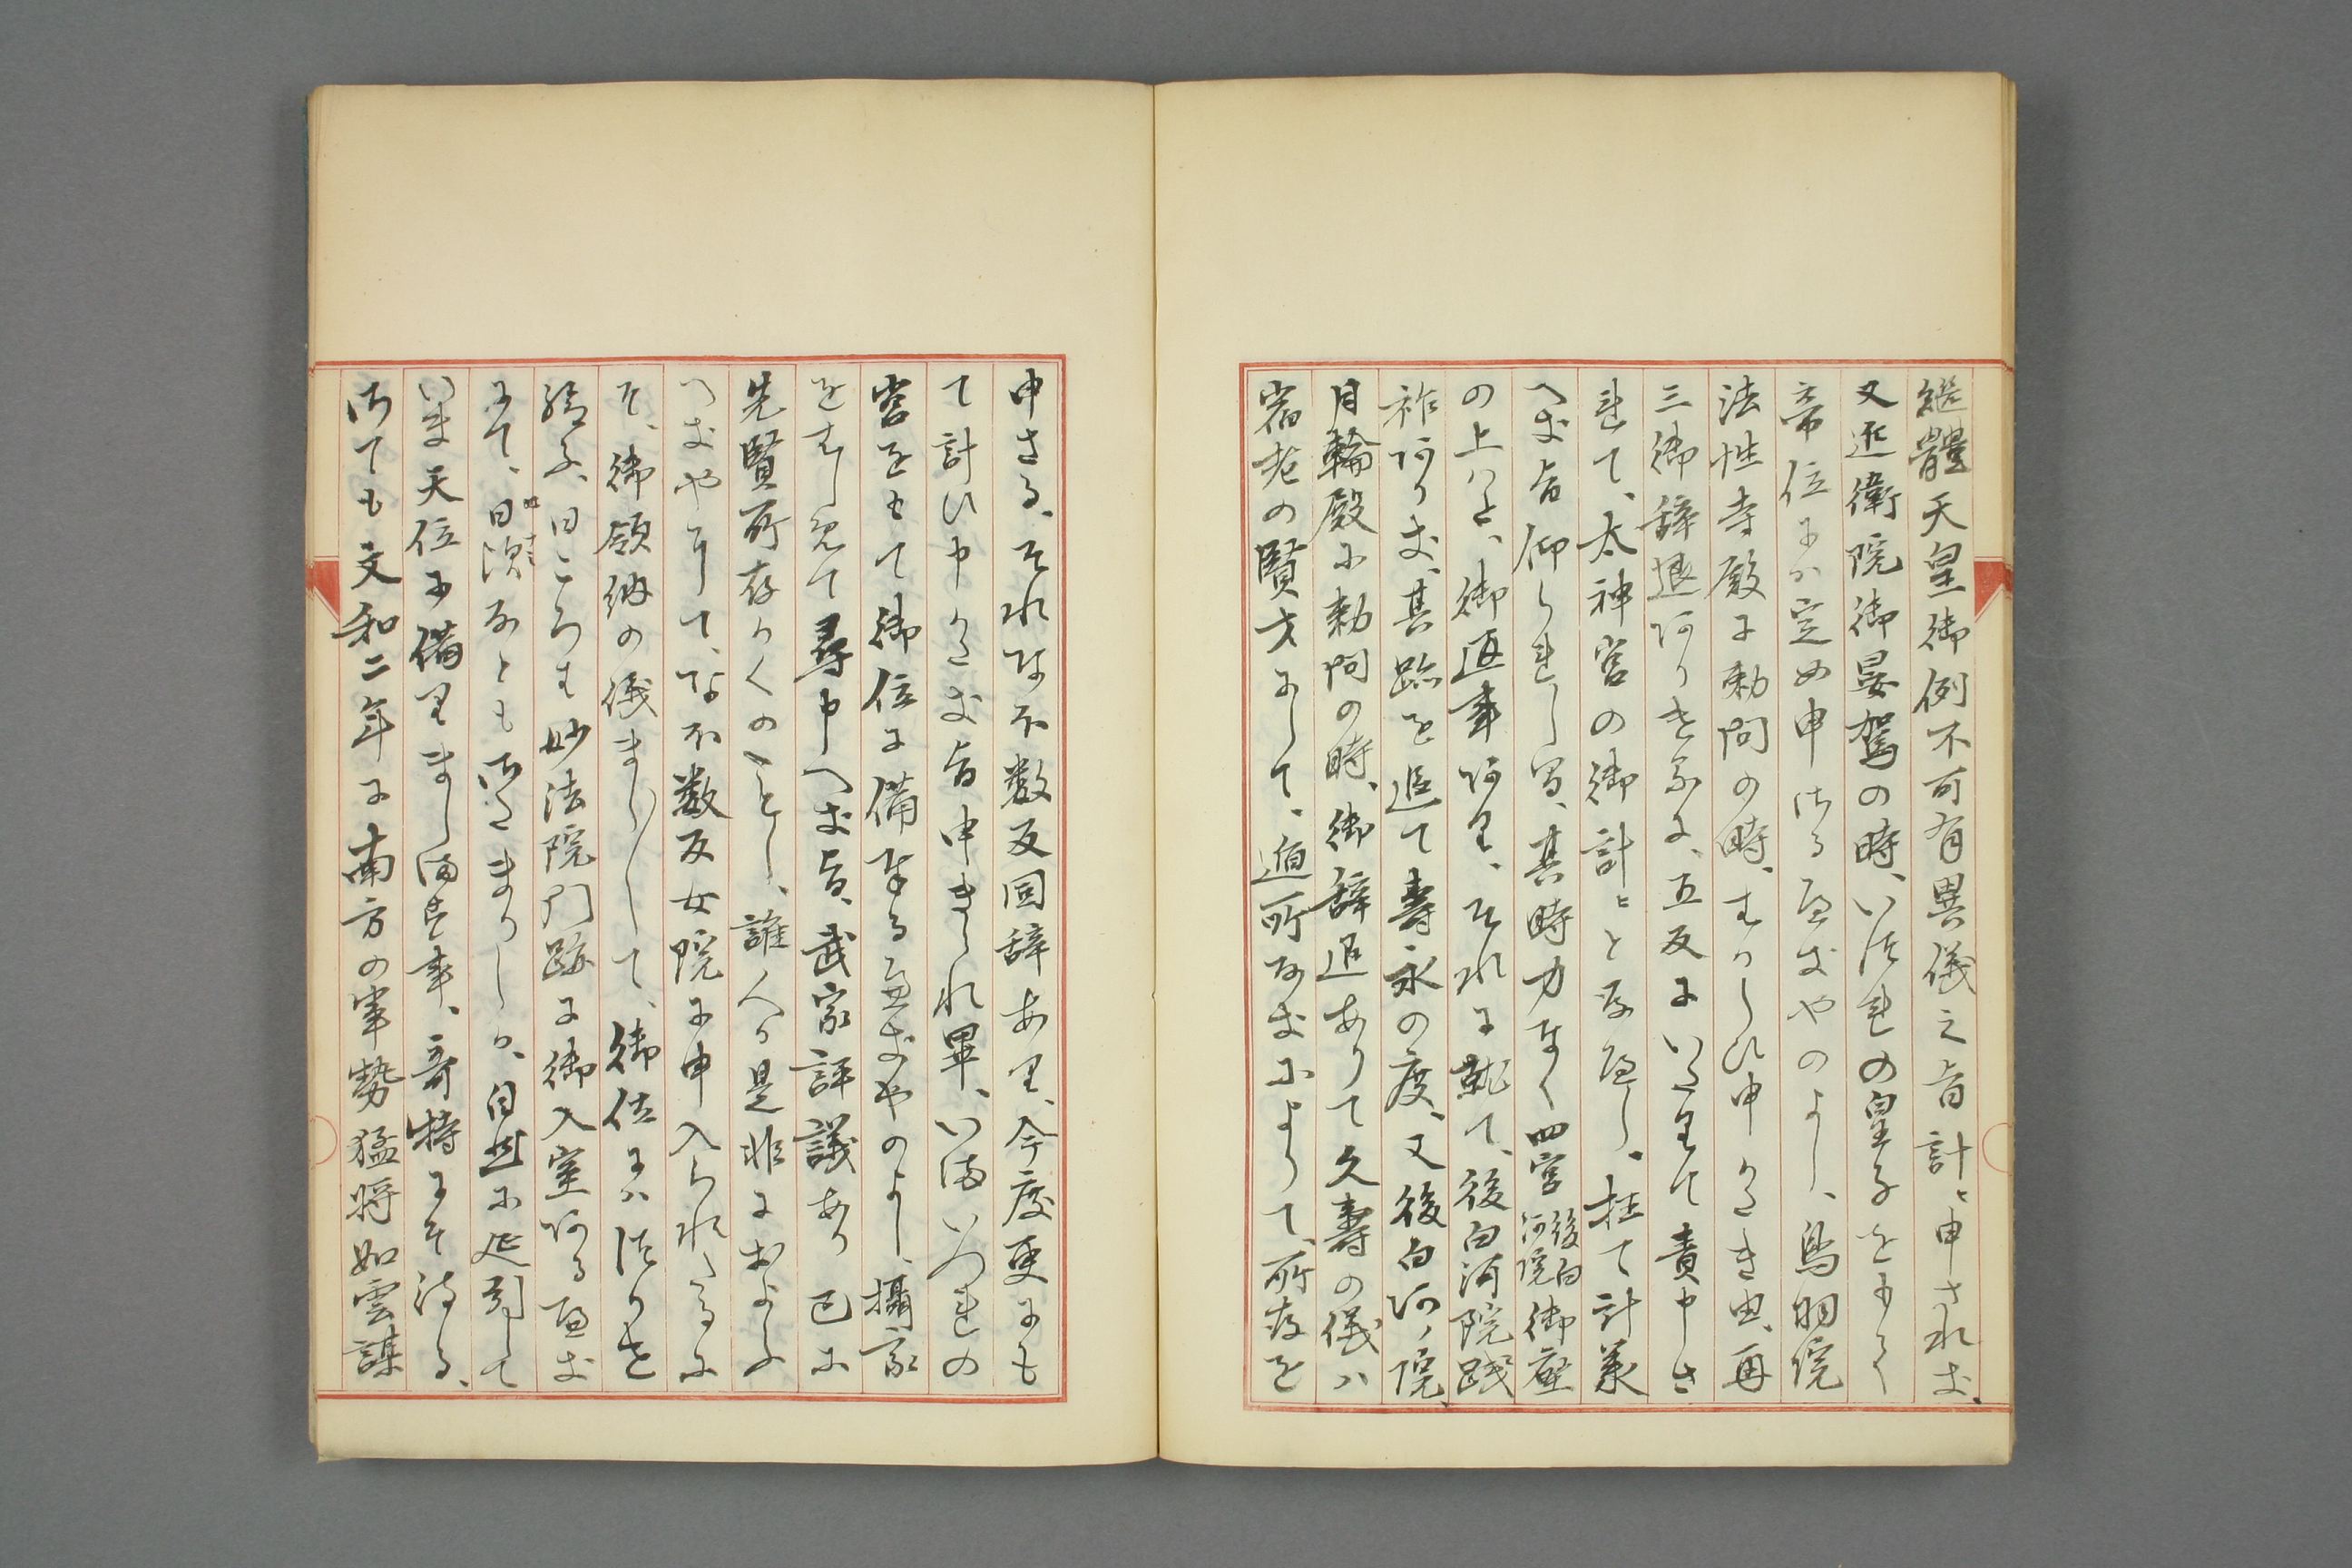 繼體天皇御例不可有異儀之旨計ヒ申されき、
又近衛院御晏駕の時、いつれの皇子をもて
帝位にか定め申さるへきやのよし、鳥羽院
法性寺殿に勅問の時、はからひ申かたき由、再
三御辞退ありけるに、五反にいたりて責申さ
れて、太神宮の御計ヒと存へし、抂て計義
へき旨仰られし間、其時力なく四宮後白河院御座
の上ハと、御返事あり、それに就て、後白河院践
祚ありき、其跡を追て壽永の度、又後白河ノ院、
月輪殿に勅問の時、御辞退ありて久壽の儀ハ
宿老の賢才にして、遁所なきによりて、所存を
申さる、それなお数反固辞あり、今度更にも
て計ひ申かたき旨申きられ畢、いまいつれの
宮をもて御位に備奉るへきやのよし、攝家
をはしめて尋申へき旨、武家評議あり已に
先賢所存かくのことし、誰人か是非におよふ
へきやとて、なお数反女院に申入られたるに
そ、御領納の儀ましましして、御位にハつかせ
給ふ、日ころは妙法院門跡に御入室あるへき
にて、日次なとも御さたまりしか、自然に延引して
いま天位に備りまし満す事、奇特にそ侍る、
さても文和二年に南方の軍勢猛将如雲謀